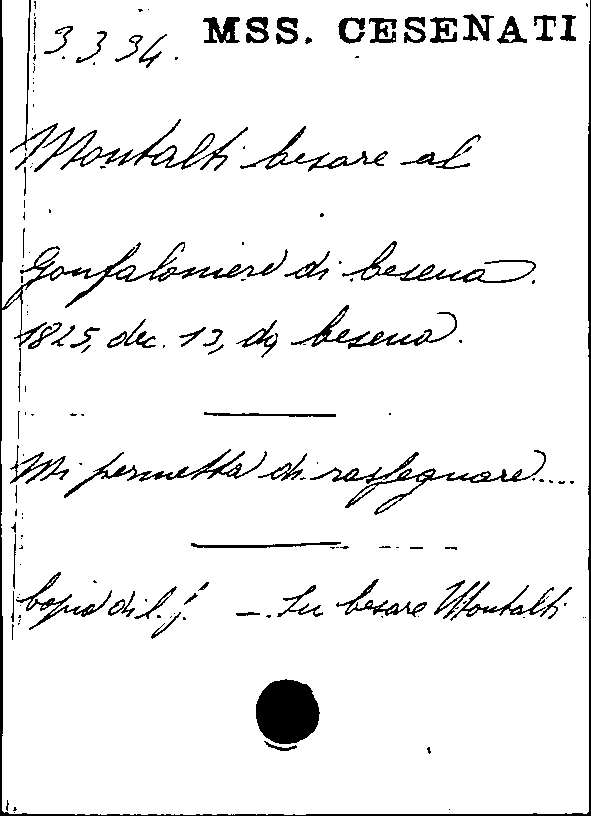 3.3.34. MSS. CESENATI
Montalti Cesare al
Gonfaloniere di Cesena.
1825, dec. 13, da Cesena.
Mi permetta di rassegnare....
Copia di l. f. – Su Cesare Montalti